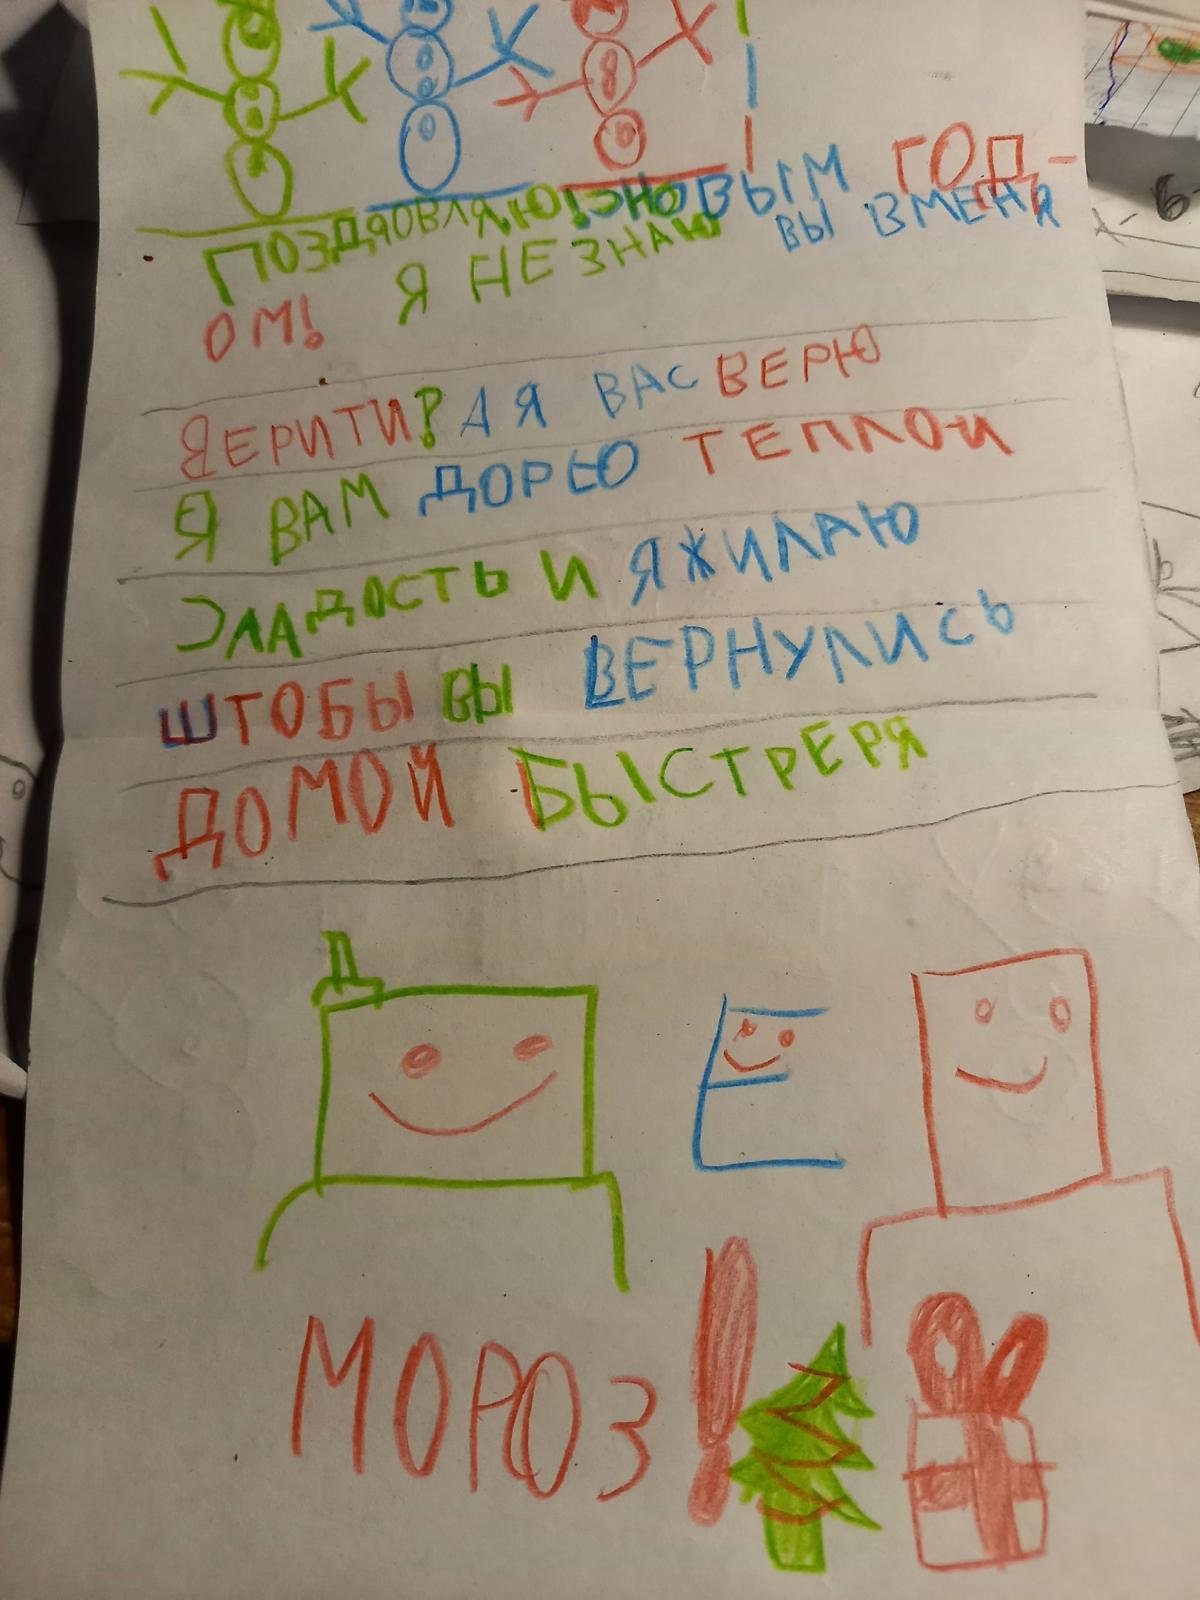 ПОЗДРОВЛЯЮ! С НОВЫМ ГОД-
ОМ! Я НЕ ЗНАЮ ВЫ В МЕНЯ
ВЕРИТИ? А Я ВАС ВЕРЮ
Я ВАМ ДОРЮ ТЕПЛОЙ
СЛАДОСТЬ И Я ЖИЛАЮ
ШТОБЫ ВЫ ВЕРНУЛИСЬ
ДОМОЙ БЫСТРЕРЯ
ДЕД
МОРОЗ!